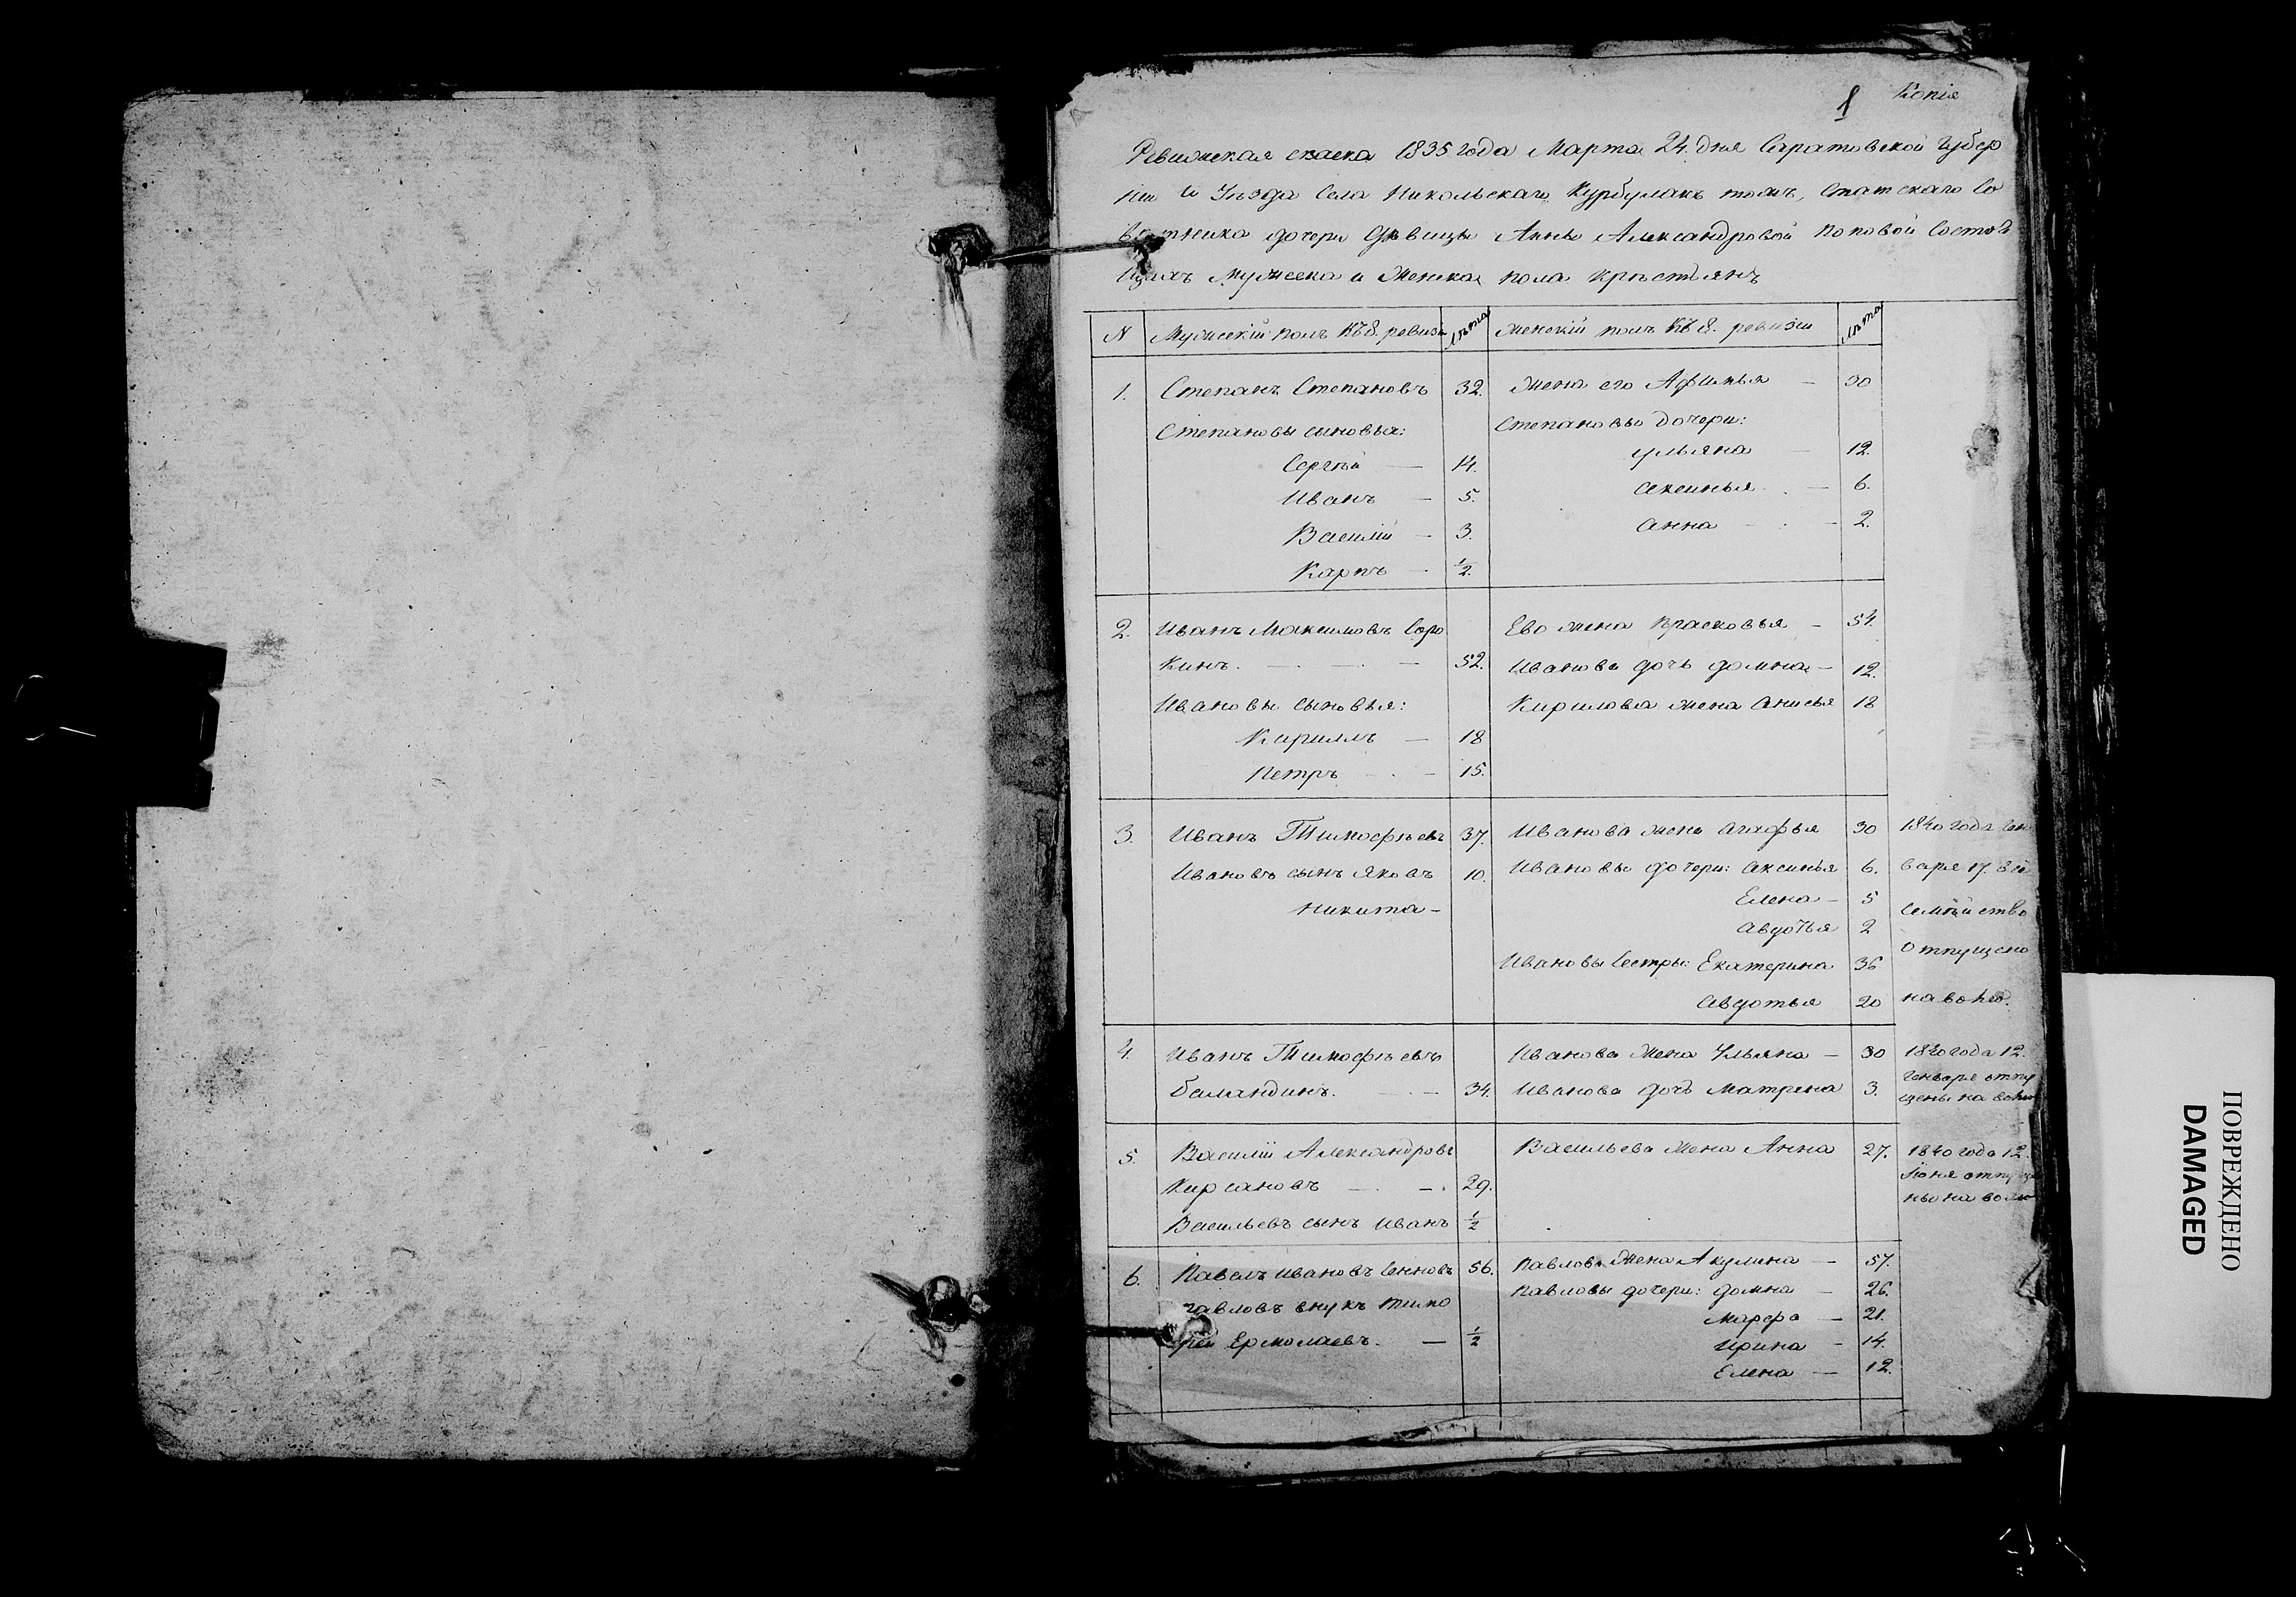 1 Копія
Ревижская скаска 1835 года Марта 24. дня Саратовской Губер
ніи и Уѣзда Села Никольскаго Курбулакъ тожъ, Статскаго Со
вѣтника дочери Дѣвицы Анны Александровой Поповой Состоя
щихъ Мужеска и Женска пола крѣстьянъ
N Мужескій полъ Къ 8. ревизіи лѣта Женскій полъ Къ 8. ревизіи лѣта
1. Степанъ Степановъ 32. Жена его Афимья — 30
Степановы сыновья: Степановы дочери:
Сергѣй — 14. Ульяна — 12.
Иванъ — 5. Аксинья — 6.
Василій — 3. Анна — 2.
Карпъ — 1/2.
2. Иванъ Максимовъ Соро Ево жена Прасковья — 54.
Кинъ. — — — 52. Иванова дочь Домна — 12.
Ивановы сыновья: Кирилова жена Анисья 18
Кириллъ — 18
Петръ — 15.
3. Иванъ Тимофѣевъ 37. Иванова жена Агафья 30 1840 года Ген
Ивановъ сынъ Яковъ 10. Ивановы дочери: Аксинья 6. варя 17. сіе
Никита — Елена — 5 Семѣйство
Авдотья 2 Отпущено
Ивановы Сестры: Екатерина 36
Авдотья 20 на волю.
4. Иванъ Тимофѣевъ Иванова Жена Ульяна — 30 1840 года 12.
Баландинъ. — 34. Иванова дочь Матрена 3. Генваря отпу
щены на волю
5. Василій Александровъ Васильева Жена Анна 27. 1840 года 12.
Кирсановъ — 29. Іюня отпуще
Васильевъ сынъ Иванъ 1/2 ны на волю
6. Павелъ Ивановъ 56. Павлова Жена Акулина — 57.
Павловъ внукъ Тимо Павловы дочери: Домна — 26.
фей Ермолаевъ. — 1/2 Марфа — 21.
Ирина — 14.
Елена — 12.
ПОВРЕЖДЕНО
DAMAGED